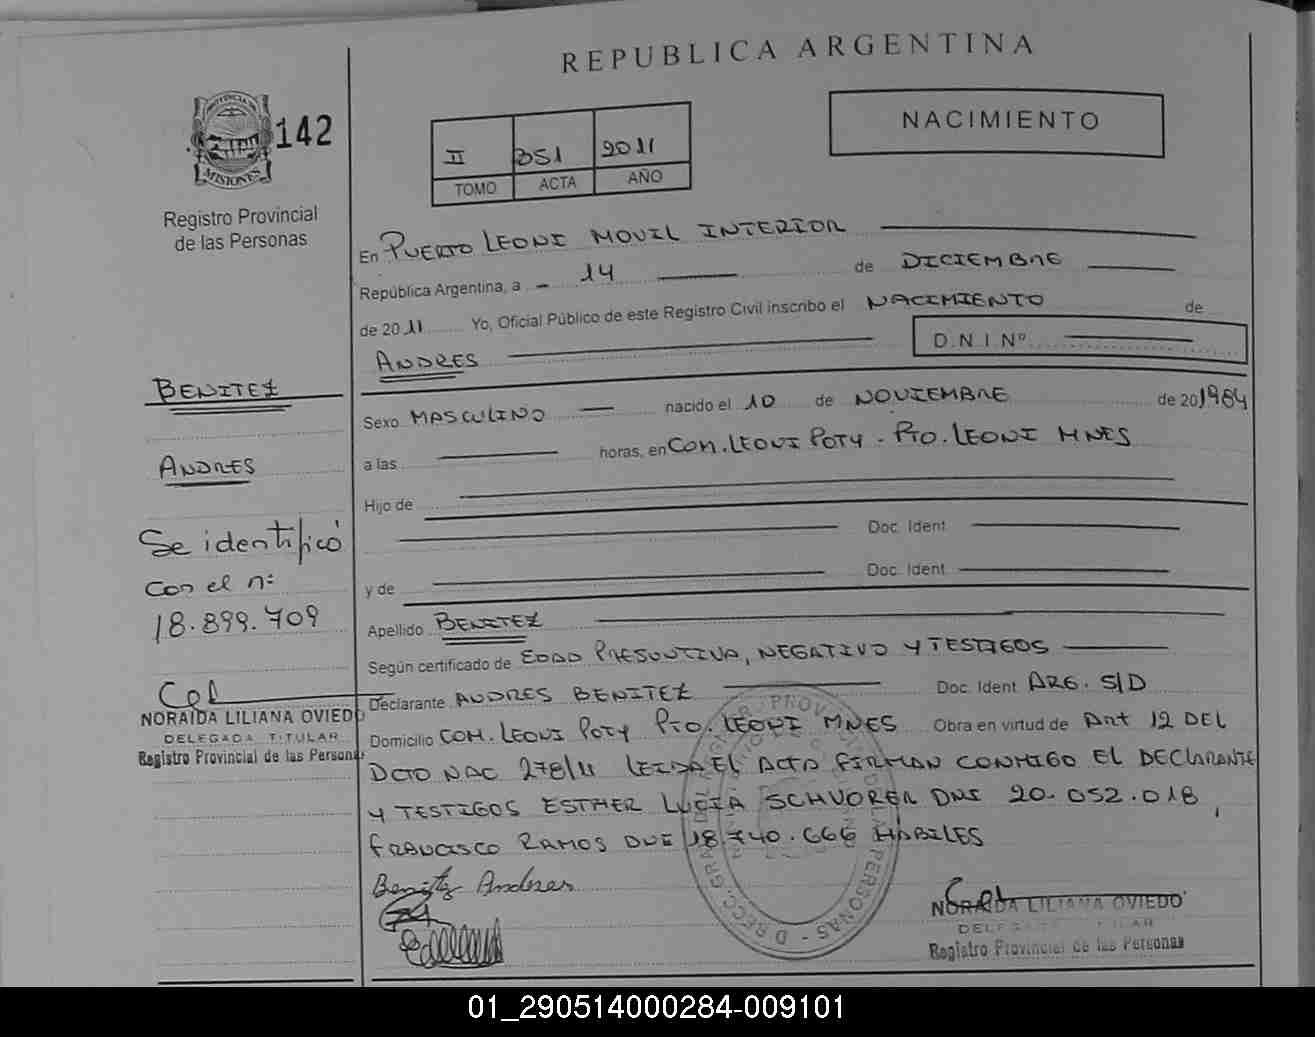 REPUBLICA ARGENTINA
142
MISIONES
Registro Provincial
de las Personas
II 351 2011
TOMO ACTA AÑO
NACIMIENTO
En PUERTO LEONI MOVIL INTERIOR
República Argentina, a 14 de DICIEMBRE
de 2011 Yo, Oficial Público de este Registro Civil inscribo el NACIMIENTO de
ANDRES D.N.I Nº
BENITEZ
Sexo MASCULINO nacido el 10 de NOVIEMBRE de 20 1984
ANDRES
a las horas, en COM. LEONI POTY - PTO. LEONI MNES
Hijo de
Se identificó
Doc. Ident.
con el nº
y de Doc. Ident.
18.899.709
Apellido BENITEZ
Según certificado de EDAD PRESUNTIVA, NEGATIVO Y TESTIGOS
Declarante ANDRES BENITEZ Doc. Ident ARG. S/D
NORAIDA LILIANA OVIEDO
DELEGADA TITULAR
Registro Provincial de las Personas
Domicilio COM. LEONI POTY PTO. LEONI MNES Obra en virtud de Art 12 DEL
DCTO NAC 278/11 LEIDA EL ACTA FIRMAN CONMIGO EL DECLARANTE
Y TESTIGOS ESTHER LUCIA SCHVORER DNI 20.052.018,
FRANCISCO RAMOS DNI 18.740.666 HABILES
Benitez Andres
NORAIDA LILIANA OVIEDO
Registro Provincial de las Personas
01_290514000284-009101